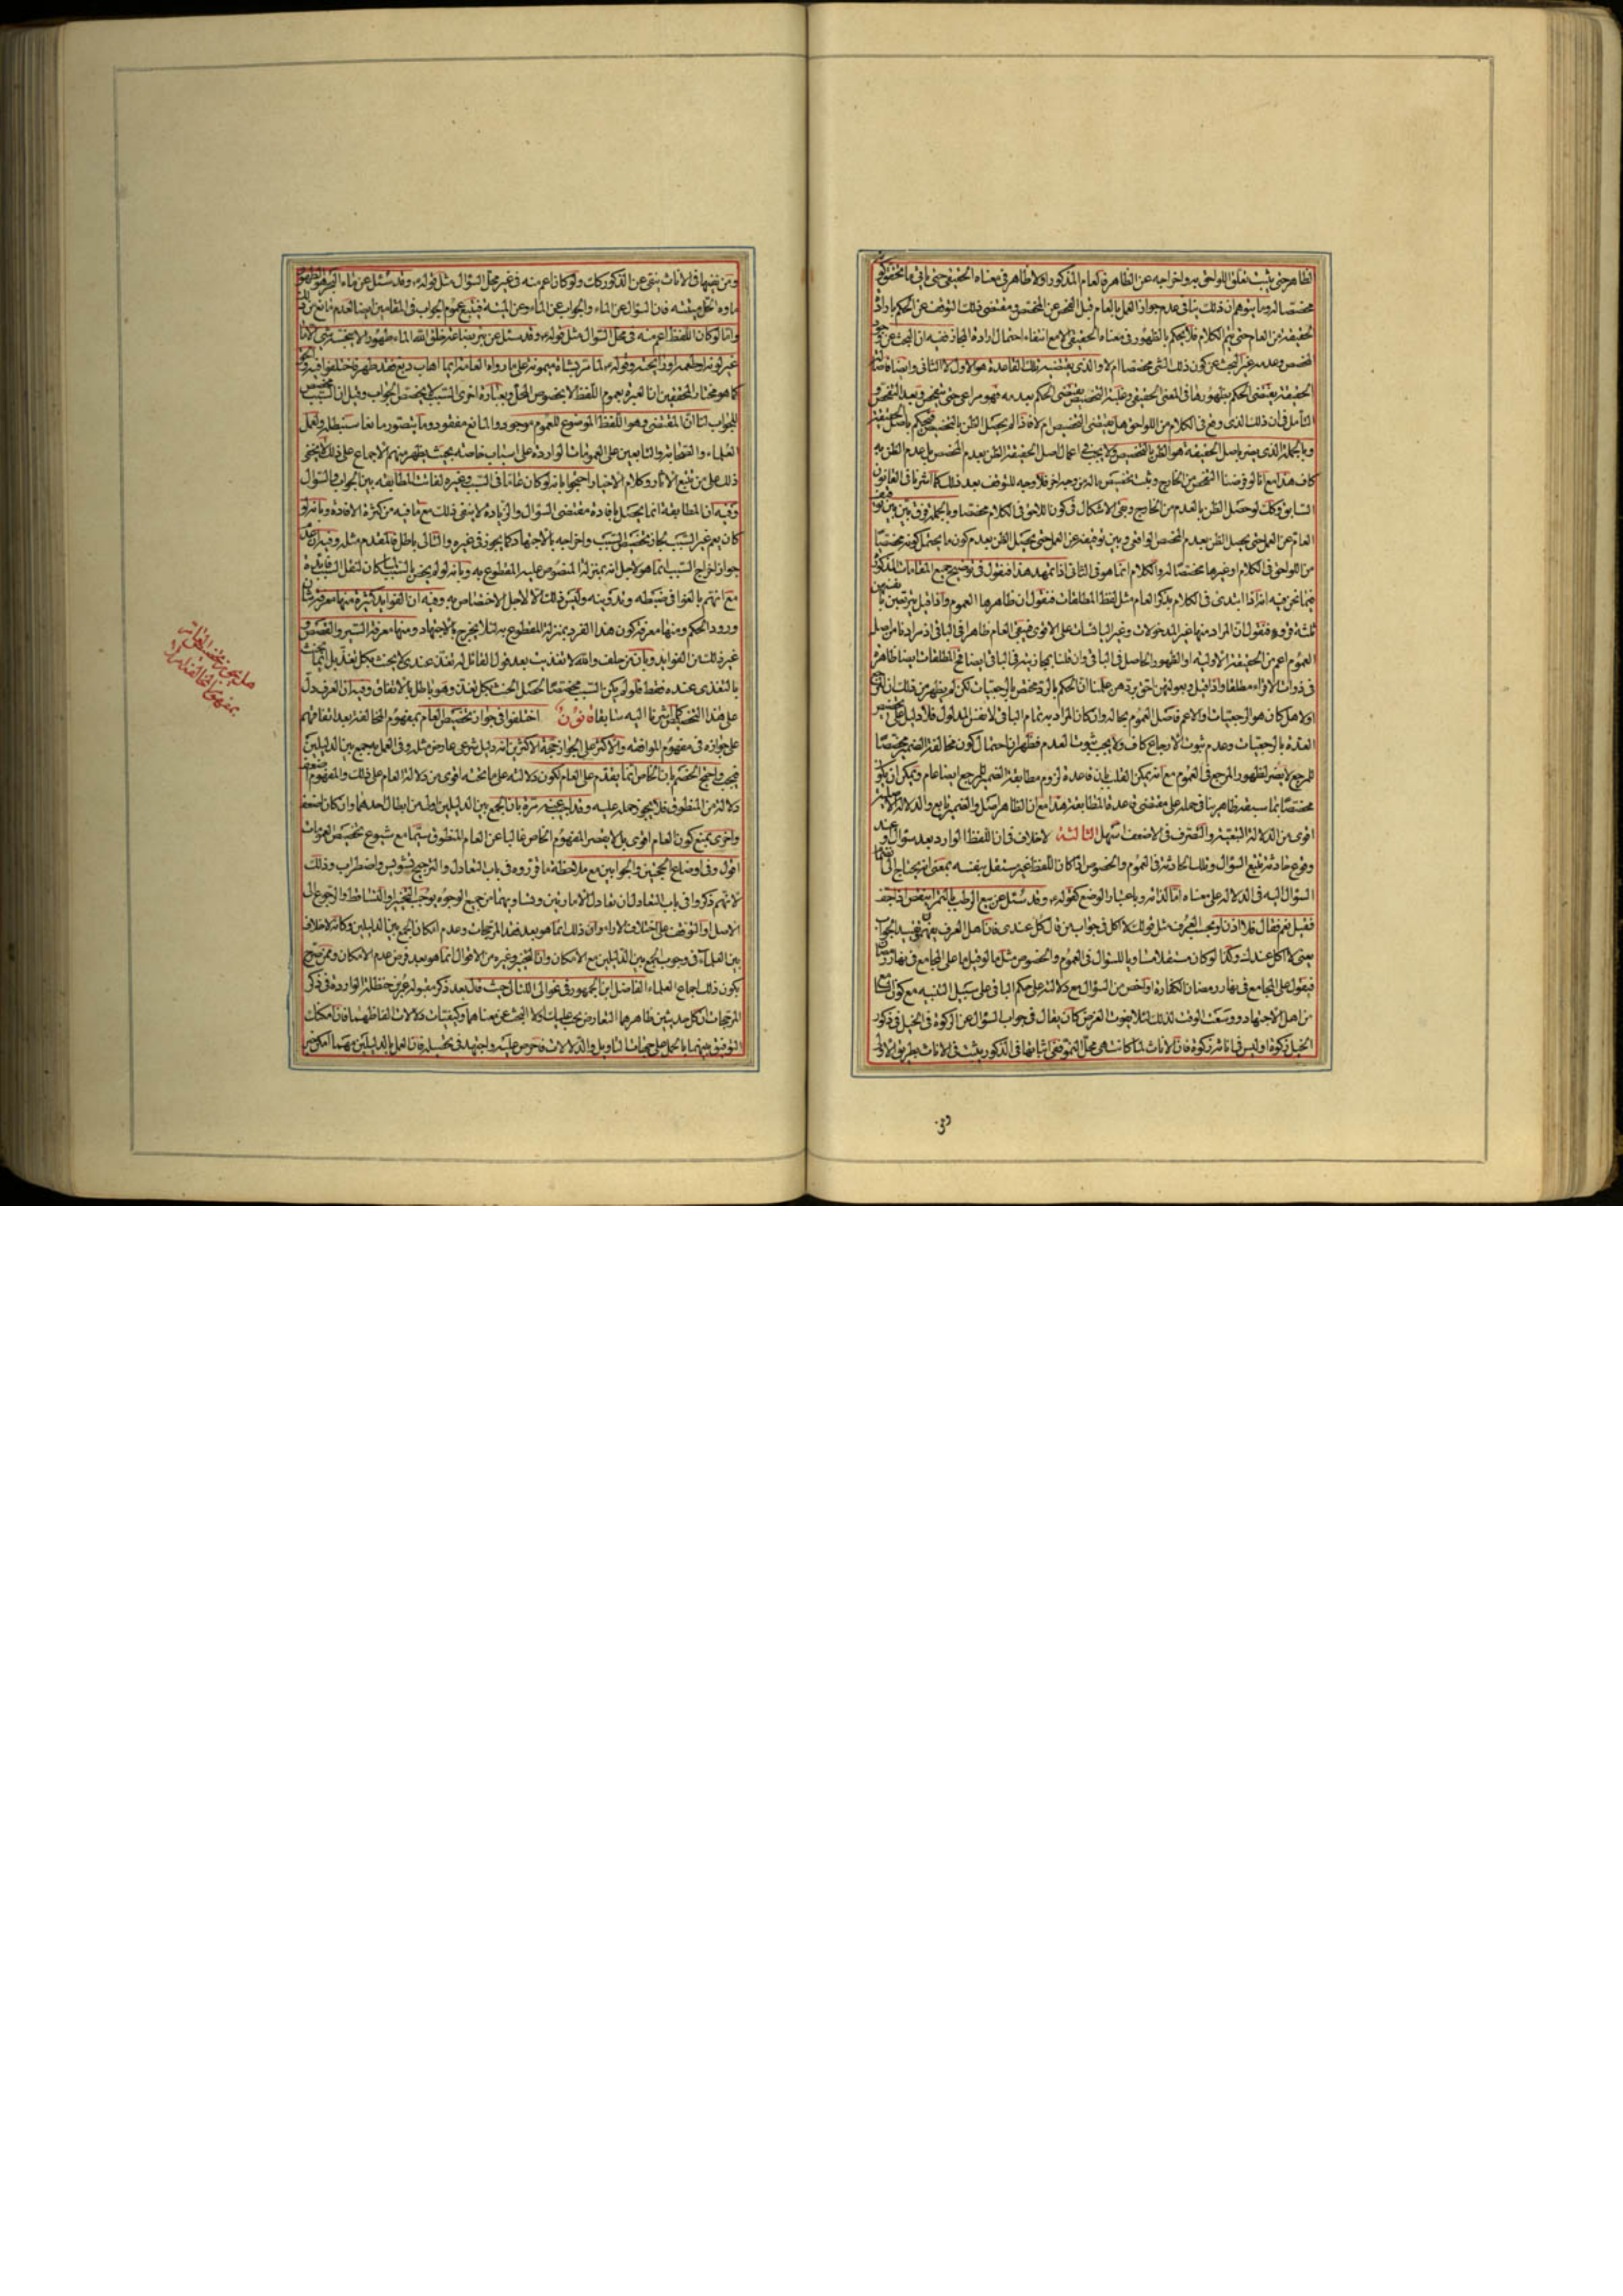 الظاهر حتى يثبت تعلق اللواحق به واخراجه عن الظاهر فالعام المذكور اولا ظاهر فى معناه الحقيقى حتى
مختصا له وما يتوهم ان ذلك ينافى عدم جواز العمل بالعام قبل الفحص عن المخصص ومقتضى ذلك التوقف عن الحكم بارادة
الحقيقة من العام حتى يتم الكلام فلا يحكم بالظهور فى معناه الحقيقى الا مع انتفاء احتمال ارادة المجاز ففيه ان البحث عن
المخصص وعدمه غير البحث عن كون ذلك الشئ مخصصا ام لا والذى يقتضيه تلك القاعدة هو الاول لا الثانى وايضا
الحقيقة يقتضى الحكم بظهورها فى المعنى الحقيقى وغلبة التخصيص يقتضى الحكم بعدمه
التأمل فى ان ذلك الذى وقع فى الكلام من اللواحق هل يقتضى التخصيص ام لا فاذا لم يحصل الظن بالتخصيص فيحكم باصل الحقيقة
وبالجملة الذى يضر باصل الحقيقة هو الظن بالتخصيص ولا يجب فى اعمال اصل الحقيقة الظن بعدم المخصص بل عدم الظن به
كاف هذا مع انا لو فرضنا الفحص من الخارج وثبت تخصيص ما له من وجه اخر فلا وجه للتوقف بعد ذلك كما اشرنا فى القانون
السابق وكذلك لو حصل الظن بالعدم من الخارج وبقى الاشكال فى كون اللاحق فى الكلام مخصصا وبالجملة فرق بين بين
العام عن العمل حتى يحصل الظن بعدم المخصص الواقعى وبين توقيفه عن العمل حتى يحصل الظن بعدم كون ما يحتمل كونه مخصصا
من اللواحق فى الكلام او غيرها مخصصا له والكلام انما هو فى الثانى اذا تمهد هذا فنقول فى توضيح جميع المقامات المذكورة
فيما نحن فيه انه اذا ابتدى فى الكلام بذكر العام مثل لفظ المطلقات فنقول ان ظاهرها العموم واذا قيل يتربصن بانفسهن
ثلثة قروء فنقول ان المراد منها غير المدخولات وغير اليائسات على الاقوى فيبقى العام ظاهرا فى الباقى
العموم اعم من الحقيقة الاولية او الظهور الحاصل فى الباقى وان قلنا بمجازيته فى الباقى ايضا فالمطلقات ايضا ظاهرة
فى ذوات الاقراء مطلقا واذا قيل وبعولتهن احق بردهن علمنا ان الحكم بالرد مختص بالرجعيات لكن لم يظهر من ذلك
اولا هل كان هو الرجعيات او الاعم فاصل العموم بحاله وان كان المراد به تمام الباقى لا نفس المدلول فلا دليل على تخصيص
العدة بالرجعيات وعدم ثبوت الارجاع كاف ولا يجب ثبوت العدم فظهر ان احتمال كون مخالفة الضمير مخصصا
للمرجع لا يضر لظهور المرجع فى العموم مع انه يمكن القلب بان قاعدة لزوم مطابقة الضمير للمرجع ايضا عام ويمكن ان يكون
مخصصا بما سبقه ظاهر ينافى حمله على مقتضى قاعدة المطابقة هذا مع ان الظاهر اصل والضمير تابع والدلالة الاصلية
اقوى من الدلالة التبعية والتصرف فى الاضعف اسهل الثالثة لا خلاف فى ان اللفظ الوارد بعد سؤال او عند
وقوع حادثة يتبع السؤال وتلك الحادثة فى العموم والخصوص اذا كان اللفظ غير مستقل بنفسه بمعنى انه يحتاج الى
السؤال اليه فى الدلالة على معناه اما لذاته وباعتبار الوضع كقوله ع وقد سئل عن بيع الرطب بالتمر اينقص اذا جف
فقيل نعم فقال فلا اذن او بحسب العرف مثل قولك لا اكل فى جواب من قال كل عندى فان اهل العرف يفهم
يعنى لا اكل عندك وكذا لو كان مستقلا مساويا للسؤال فى العموم والخصوص مثل ما لو قيل ما على المجامع فى نهار رمضان
فيقول على المجامع فى نهار رمضان الكفارة او اخص من السؤال مع دلالته على حكم الباقى على سبيل التنبيه مع كون السامع
من اهل الاجتهاد ووسعت الوقت لذلك لئلا يفوت الغرض كان يقال فى جواب السؤال عن الزكوة فى الخيل فى ذكور
الخيل زكوة او ليس فى اناثه زكوة فان الاناث لما كانت هى محل النمو فمع اثباتها فى الذكور يثبت فى الاناث بطريق الاولى
ومن نفيها فى الاناث ينفى عن الذكور وكذا لو كان اعم منه فى غير محل السؤال مثل قوله ع وقد سئل عن ماء البحر هو الطهور
ماؤه الحل ميتته فان السؤال عن الماء والجواب عن الماء وعن الميتة فيتبع عموم الجواب فى المقامين ايضا لعدم مانع من ذلك
واما لو كان اللفظ اعم منه فى محل السؤال مثل قوله ع وقد سئل عن بئر بضاعة خلق الله الماء طهورا لا ينجسه شئ الا ما
غير لونه او طعمه او رائحته وقوله ع لما مر بشاة ميمونة على ما رواه العامة ايما اهاب دبغ فقد طهر فاختلفوا فيه
كما هو مختار المحققين ان العبرة بعموم اللفظ لا بخصوص المحل وبعبارة اخرى السبب لا يخصص الجواب وقيل ان السبب مخصص
للجواب لنا ان المقتضى وهو اللفظ الموضوع للعموم موجود والمانع مفقود وما يتصور مانعا سنبطله ولعمل
العلماء والصحابة والتابعين على العمومات الواردة على اسباب خاصة بحيث يظهر منهم الاجماع على ذلك كما لا يخفى
ذلك على من تتبع الاثار وكلام الاخيار احتجوا بانه لو كان عاما فى السبب وغيره لفات المطابقة بين الجواب والسؤال
وفيه ان المطابقة انما يحصل بافادة مقتضى السؤال والزيادة لا ينفى ذلك مع ما فيه من كثرة الافادة وبانه لو
كان يعم غير السبب لجاز تخصيص السبب واخراجه بالاجتهاد كما يجوز فى غيره والتالى باطل فالمقدم مثله وفيه ان عدم
جواز اخراج السبب انما هو لاجل انه بمنزلة المنصوص عليه المقطوع به وبانه لو لم يخص بالسبب لما كان لنقل السبب فائدة
مع انهم بالغوا فى ضبطه وتدوينه وليس ذلك الا لاجل الاختصاص به وفيه ان الفوايد كثيرة منها معرفة شان
ورود الحكم ومنها معرفة كون هذا الفرد بمنزلة المقطوع به لئلا يخرج بالاجتهاد ومنها معرفة السير والقصص و
غير ذلك من الفوايد وبان من حلف والله لا تغديت بعد قول القائل له تغد عندى لا يحنث بكل تغد بل انما يحنث
بالتغدى عنده فقط فلو لم يكن السبب مخصصا لحصل الحنث بكل تغد وهو باطل بالاتفاق وفيه ان العرف دل
على هذا التخصيص كما اشرنا اليه سابقا قانون اختلفوا فى جواز تخصيص العام بمفهوم المخالفة بعد اتفاقهم
على جوازه فى مفهوم الموافقة والاكثر على الجواز حجة الاكثرين انه دليل شرعى عارض مثله وفى العمل به جمع بين الدليلين
فيجب واحتج الخصم بان الخاص انما يقدم على العام لكون دلالته على ما تحته اقوى من دلالة العام على ذلك والمفهوم اضعف
دلالة من المنطوق فلا يجوز حمله عليه وقد اجيب عنه مرة بان الجمع بين الدليلين اولى من ابطال احدهما وان كان اضعف
واخرى بمنع كون العام اقوى بل لا يقصر المفهوم الخاص غالبا عن العام المنطوق سيما مع شيوع تخصيص العمومات
اقول وفى اوضاع الحجتين والجوابين مع ملاحظة ما قرروه فى باب التعادل والترجيح تشويش واضطراب وذلك
لانهم ذكروا فى باب التعادل ان تعادل الامارتين وتساويهما من جميع الوجوه يوجب التخيير او التساقط والرجوع الى
الاصل او التوقف على اختلاف الاراء وان ذلك انما هو بعد فقد المرجحات وعدم امكان الجمع بين الدليلين وكانه لا خلاف
بين العلماء فى وجوب الجمع بين الدليلين مع الامكان وان التخيير وغيره من الاقوال انما هو بعد فرض عدم الامكان وممن صرح
بكون ذلك اجماع العلماء الفاضل ابن الجمهور فى عوالى اللئالى حيث قال بعد ذكر مقبولة عمر بن حنظلة الواردة فى ذكر
المرجحات ان كل حديثين ظاهرهما التعارض يجب عليك اولا البحث عن معناهما وكيفيات دلالات الفاظهما فان امكنك
التوفيق بينهما بالحمل على جهات التاويل والدلالات فاحرص عليه واجتهد فى تحصيله فان العمل بالدليلين مهما امكن خير
هل يجوز تخصيص العام
بمفهوم المخالفة ام لا